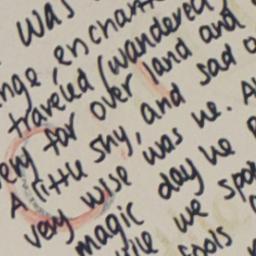 was
enchant
traveled (wandered
far over land and
A little shy, and sad o
very wise was he. A
magic day he
we spo
fools